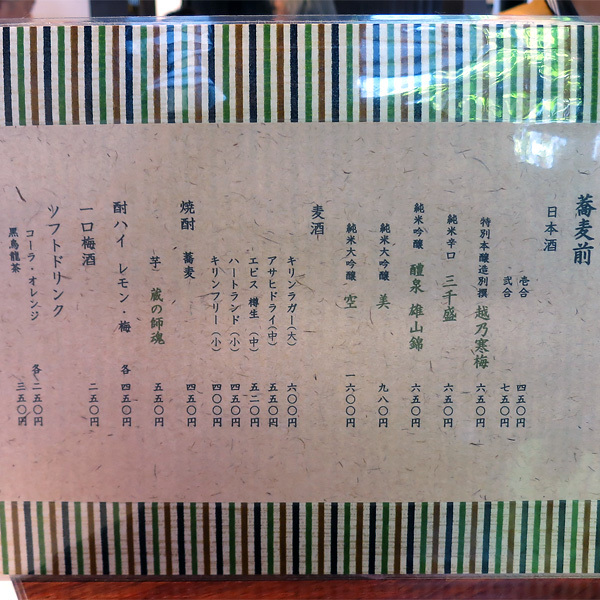 蕎麦前
日本酒
壱合 四五〇円
弐合 七五〇円
特別本醸造別撰 越乃寒梅 六五〇円
純米辛口 三千盛 六五〇円
純米吟醸 醴泉 雄山錦 六五〇円
純米大吟醸 美 九八〇円
純米大吟醸 空 一六〇〇円
麦酒
キリンラガー(大) 六〇〇円
アサヒドライ(中) 五五〇円
エビス 樽生 (中) 五二〇円
ハートランド (小) 四五〇円
キリンフリー (小) 四〇〇円
焼酎 蕎麦 四五〇円
芋 蔵の師魂 五五〇円
酎ハイ レモン・梅 各 四五〇円
一口梅酒 二五〇円
ソフトドリンク
コーラ・オレンジ 各二五〇円
黒烏龍茶 三五〇円